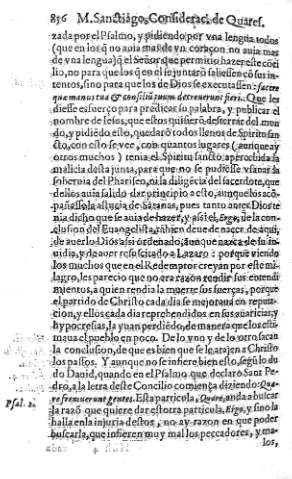 856 M. Sanctiago, Consideraci. de Quares.
zada por el Psalmo, y pidiendo por vna lengua todos
(que en los q̃ no auia mas de vn coraçon no auia mas
de vna lengua) q̃ el Señor que permitio hazer este cõci
lio, no para que los q̃ en el se juntarõ saliessen cõ sus in-
tentos, sino para que los de Dios se executassen: facere
que manus tua & consiliũ tuum decreuerunt fieri. Que les
diesse esfuerço para predicar su palabra, y publicar el
nombre de Iesus, que estos quisierõ desterrar del mun
do, y pidiẽdo esto, quedarõ todos llenos de Spiritu san
cto, con esto se vee, con quantos lugares (aunque ay
otros muchos) tenia el Spiritu sancto apercebida la
malicia desta junta, para que no se pudiesse vfanar la
soberuia del Phariseo, ni la diligẽcia del sacerdote, que
dellos auia salido dar principio a esto, aunque los acõ-
pañasse la astucia de Satanas, pues tanto antes Dios te
nia dicho que se auia de hazer, y assi el, Ergo, de la con-
clusion del Euangelista, tãbien deue de nacer de aqui,
de auerlo Dios assi ordenado, aunque nazca de la in-
uidia, y de auer resuscitado a Lazaro: porque viendo
los muchos que en el Redemptor creyan por este mi-
lagro, les parecio que no era razon rendir sus entendi
mientos, a quien rendia la muerte sus fuerças, porque
el partido de Christo cada dia se mejoraua en reputa-
cion, y ellos cada dia reprehendidos en sus auaricias, y
hypocresias, la yuan perdiẽdo, de manera que los esti-
maua el pueblo en poco. De lo vno y de lo otro sacan
la conclusion, de que es bien que se le atajen a Christo
los passos. Y aunque no se infiere bien esto, segũ lo du
do Dauid, quando en el Psalmo que declarò Sant Pe-
dro, a la letra deste Concilio comiença diziendo: Qua-
Psal. 2. re fremuerunt gentes. Esta particula, Quare, anda a buscar
la razõ que quiere dar estotra particula, Ergo, y sino la
halla en la injuria destos, no ay razon en que poder
buscarla, que infieren muy mal los peccadores, y ma-
los,